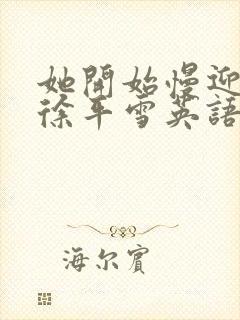 她開始慢迎
徐平雪英語
海尔賓